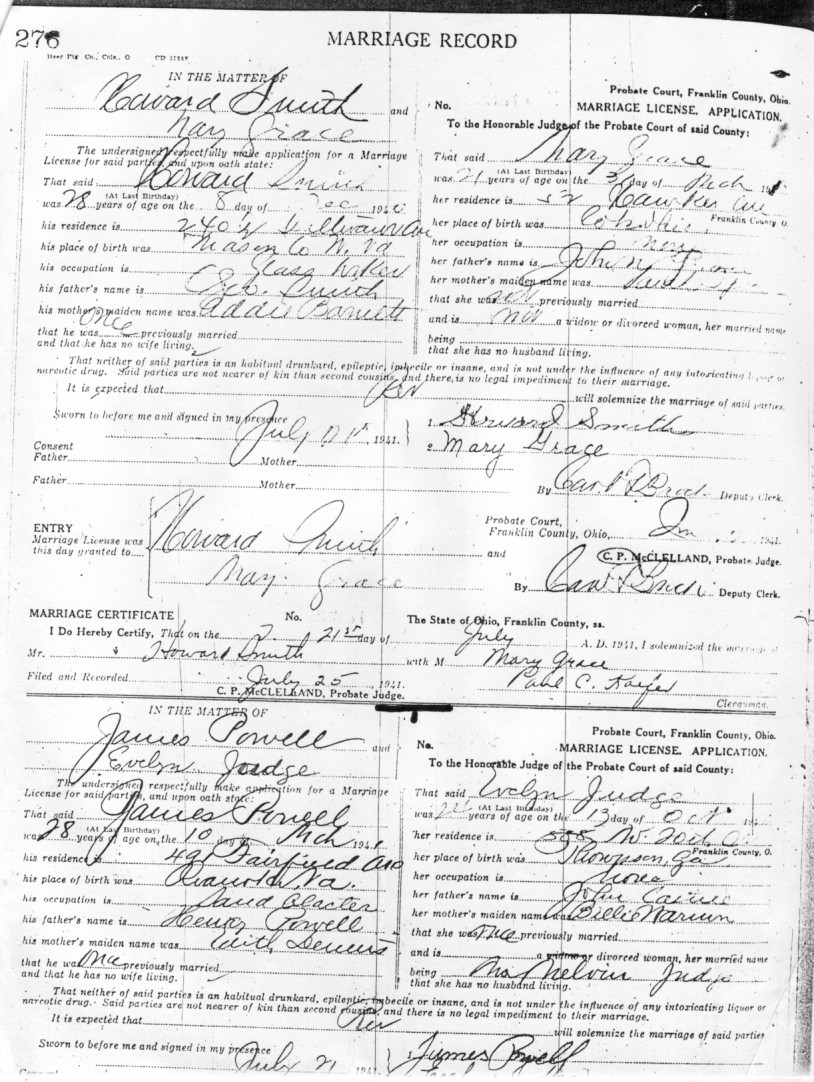 276
MARRIAGE RECORD
IN THE MATTER OF
Howard Smith and
Mary Grace
The undersigned respectfully make application for a Marriage
License for said parties, and upon oath state:
That said Howard Smith
(At Last Birthday)
was 28 years of age on the 8 day of Dec 1940
his residence is 240½ Ave
his place of birth was Mason Co W. Va
his occupation is Glass
his father's name is Geo. Smith
his mother's maiden name was Addie Barnett
that he was once previously married
and that he has no wife living.
Probate Court, Franklin County, Ohio.
No. MARRIAGE LICENSE. APPLICATION.
To the Honorable Judge of the Probate Court of said County:
That said Mary Grace
(At Last Birthday)
was 21 years of age on the day of Mch 194
her residence is 52 Hawkes Ave
Franklin County O.
her place of birth was Col. Ohio
her occupation is none
her father's name is John
her mother's maiden name was
that she was not previously married
and is not a widow or divorced woman, her married name
being
that she has no husband living.
That neither of said parties is an habitual drunkard, epileptic, imbecile or insane, and is not under the influence of any intoxicating liquor or
narcotic drug. Said parties are not nearer of kin than second cousins, and there is no legal impediment to their marriage.
It is expected that Rev will solemnize the marriage of said parties.
Sworn to before me and signed in my presence
July 17th, 1941.
1. Howard Smith
2. Mary Grace
Consent
Father Mother
Father Mother
By Deputy Clerk.
ENTRY
Marriage License was
this day granted to
Howard Smith
and
Mary Grace
Probate Court,
Franklin County, Ohio, 1941.
C. P. McCLELLAND, Probate Judge.
By Deputy Clerk.
MARRIAGE CERTIFICATE No. The State of Ohio, Franklin County, ss.
I Do Hereby Certify, That on the 21st day of July A. D. 1941, I solemnized the marriage of
Mr. Howard Smith with M Mary Grace
Filed and Recorded July 25 1941. Paul C.
C. P. McCLELLAND, Probate Judge. Clergyman.
IN THE MATTER OF
James Powell and
Evelyn Judge
The undersigned respectfully make application for a Marriage
License for said parties, and upon oath state:
That said James Powell
(At Last Birthday)
was 28 years of age on the 10 day of Mch 1941
his residence is 491 Fairfield Ave
his place of birth was Va.
his occupation is
his father's name is Henry Powell
his mother's maiden name was Edith Dennis
that he was once previously married
and that he has no wife living.
Probate Court, Franklin County, Ohio.
No. MARRIAGE LICENSE. APPLICATION.
To the Honorable Judge of the Probate Court of said County:
That said Evelyn Judge
(At Last Birthday)
was years of age on the day of Oct 194
her residence is 558 W.
Franklin County, O.
her place of birth was Thompson, Ga
her occupation is None
her father's name is John
her mother's maiden name was Billie
that she was once previously married
and is a widow or divorced woman, her married name
being Mrs Melvin Judge
that she has no husband living.
That neither of said parties is an habitual drunkard, epileptic, imbecile or insane, and is not under the influence of any intoxicating liquor or
narcotic drug. Said parties are not nearer of kin than second cousins, and there is no legal impediment to their marriage.
It is expected that Rev will solemnize the marriage of said parties
Sworn to before me and signed in my presence
July 21 1941
1. James Powell